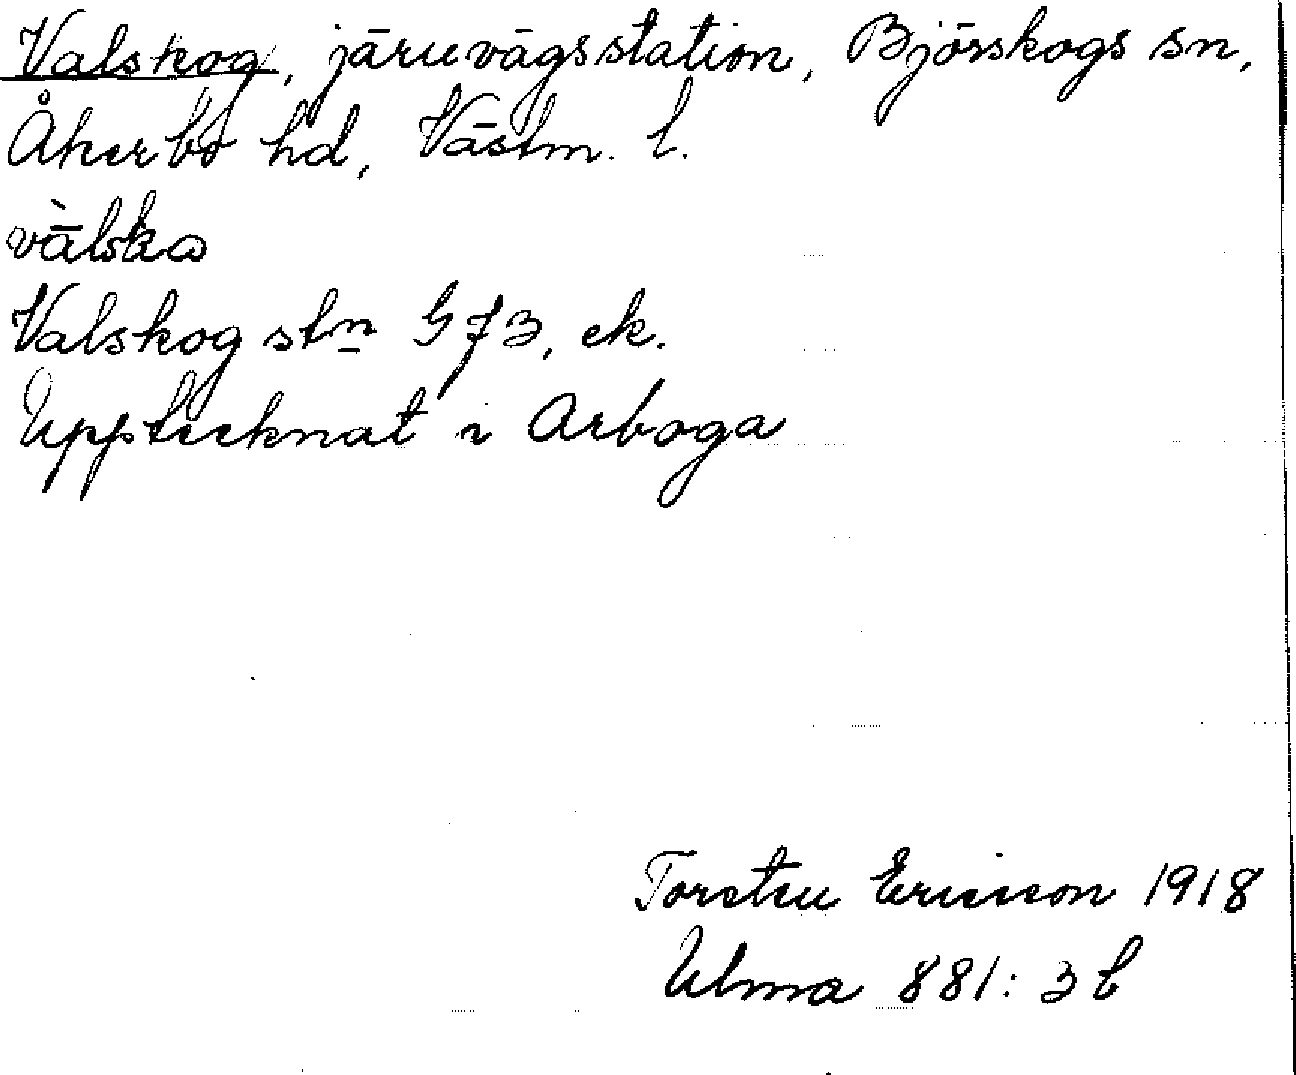 Valskog, järnvägsstation, Björskogs sn,
Åkerbo hd, Västm. l.
vā̀lska
Valskog stn G f 3, ek.
Upptecknat i Arboga
Torsten Ericson 1918
Ulma 881: 3 b